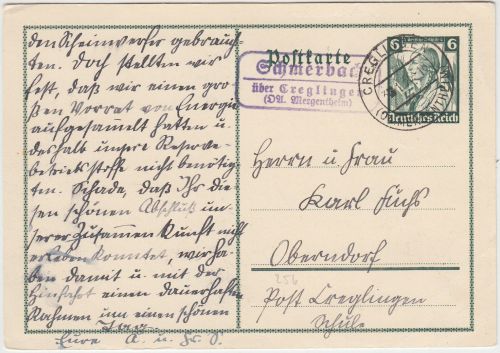 den Scheinwerfer gebrauch-
ten. Doch stellten wir
fest, daß wir einen gro-
ßen Vorrat von Energie
aufgesammelt hatten u.
deshalb unsere Reserve-
betriebstoffe nicht benötig-
ten. Schade, daß Ihr die
sen schönen Abschluß un-
serer Zusammenkunft nicht
erleben konntet, wir ha
ben damit u. mit der
Hinfahrt einen dauerhaften
Rahmen um einen schönen
Tag
Eure A. u.
Postkarte
Schmerbach
über Creglingen
(OA. Mergentheim)
CREGLINGEN
6 6
Deutsches Reich
Herrn u Frau
Karl Fuchs
Oberndorf
256
Post Creglingen
Schule